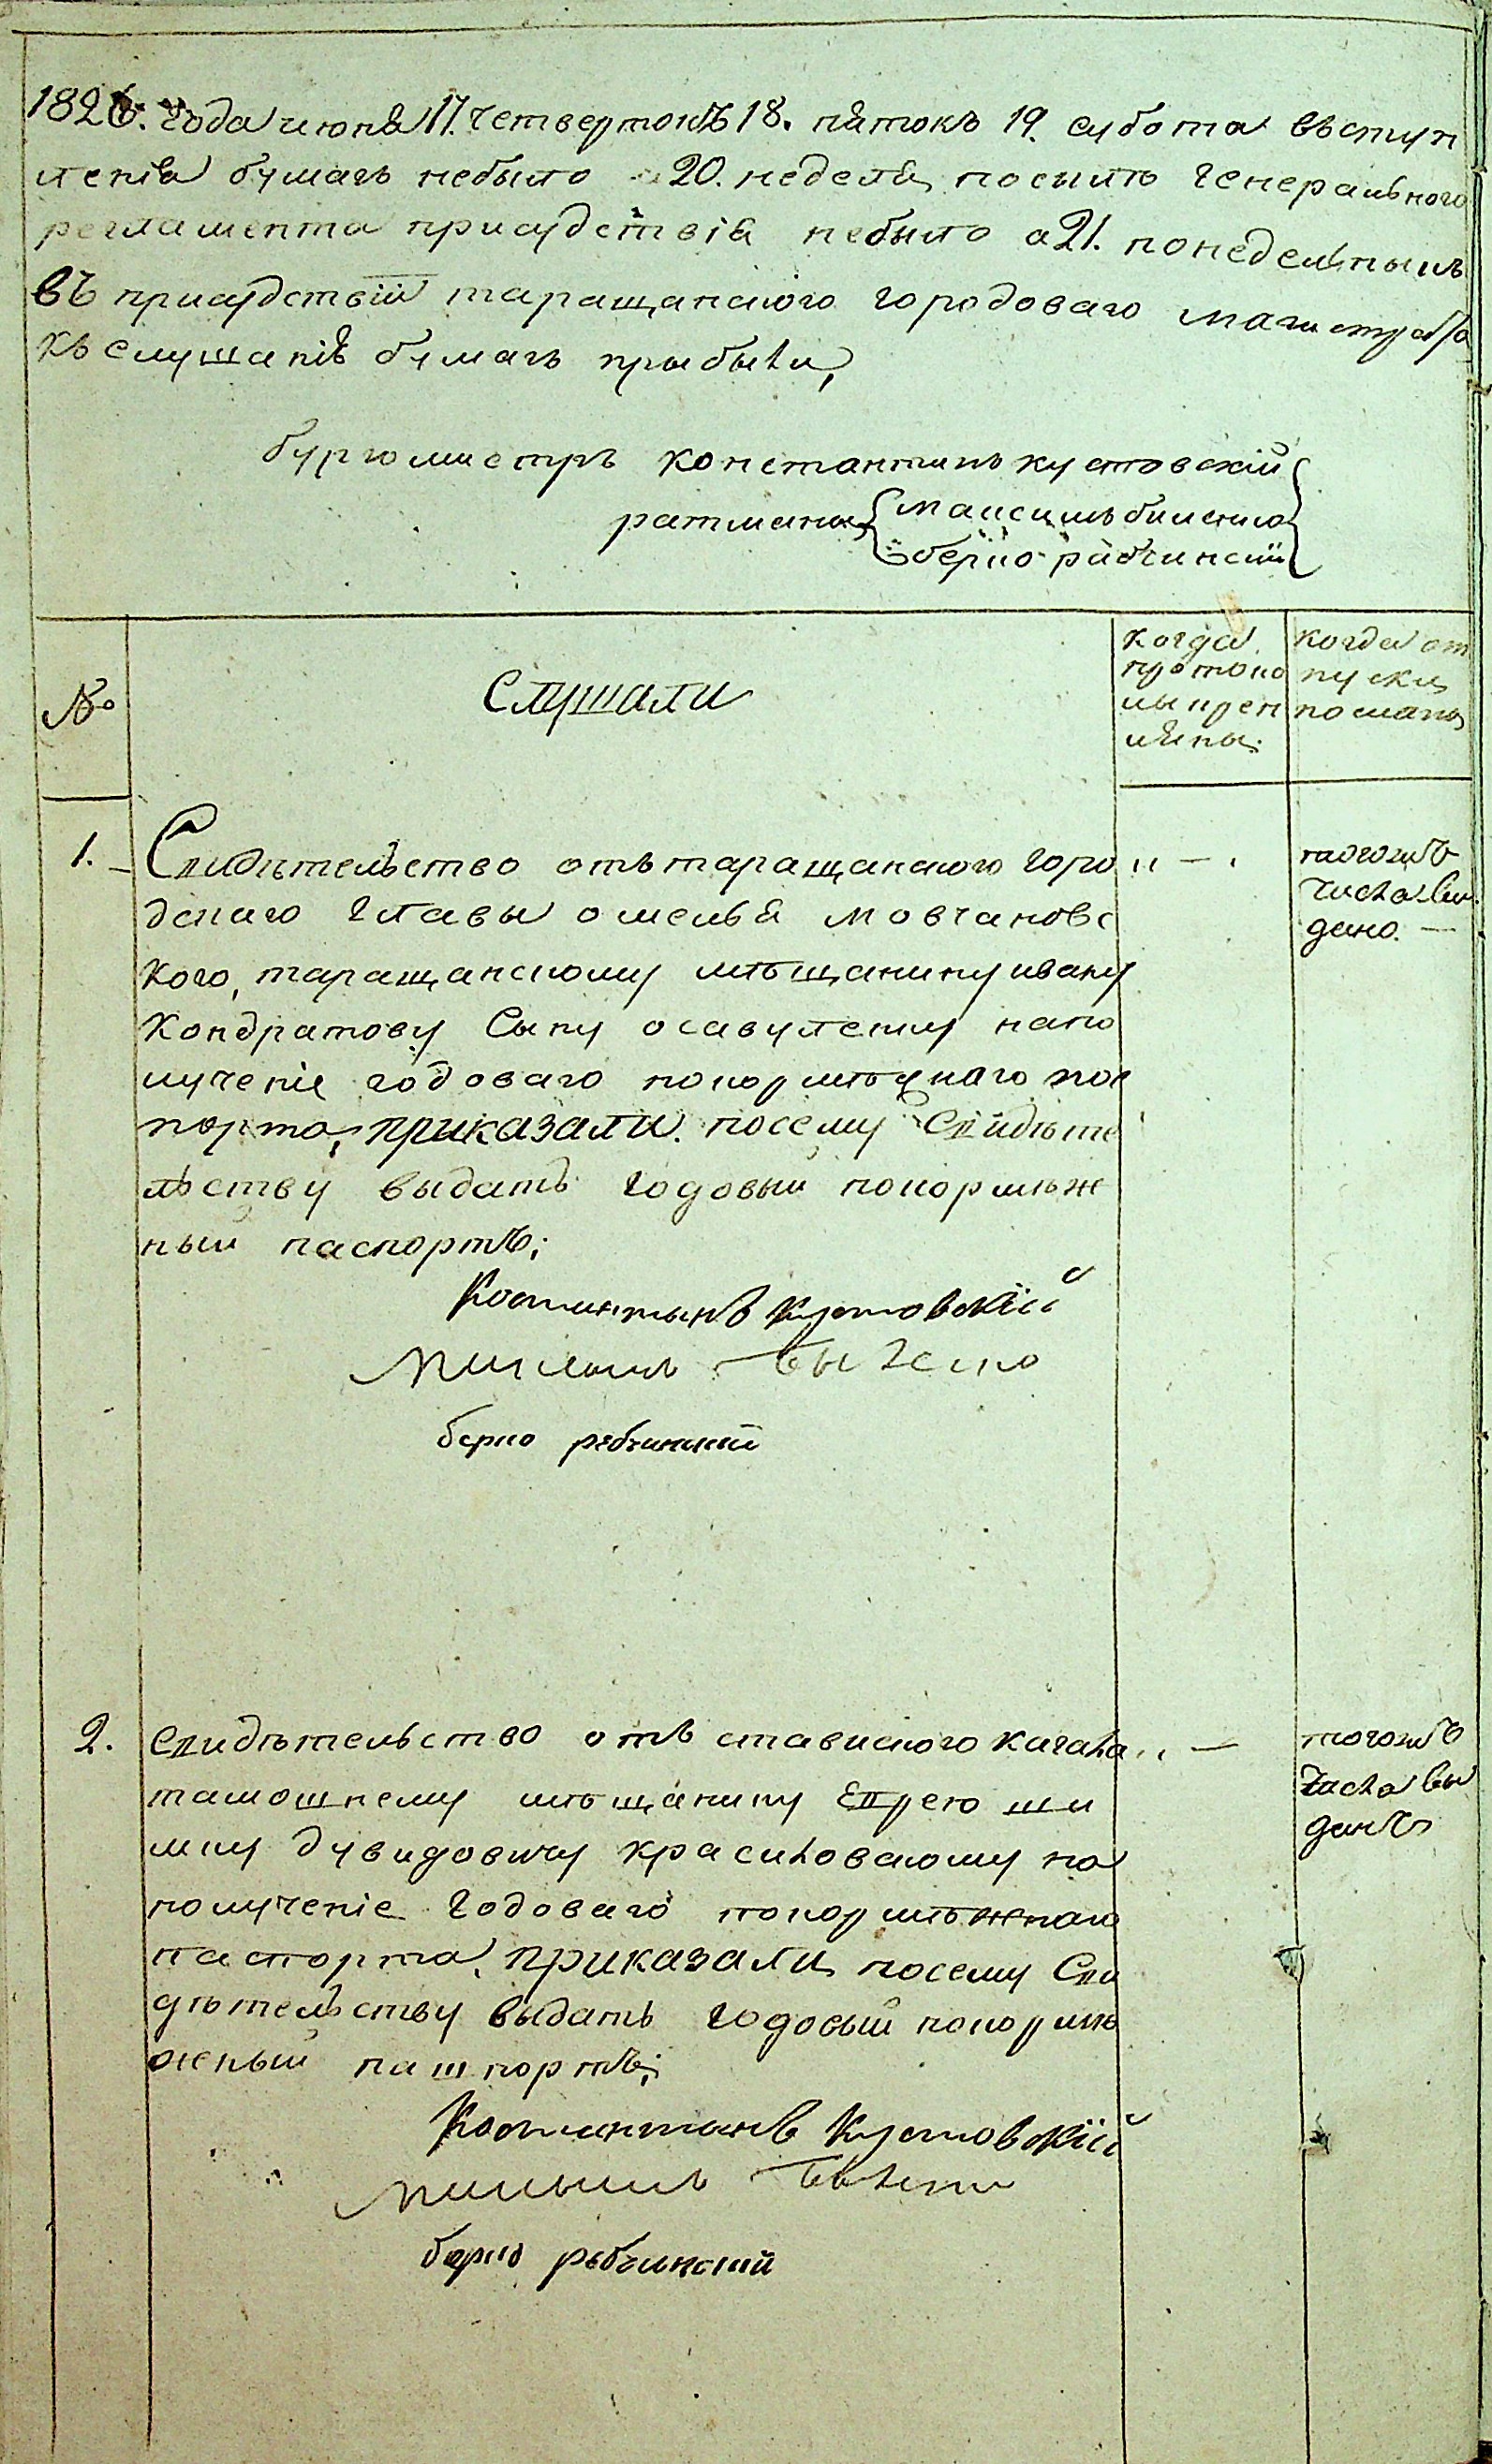 1826. года июня 17. четвертокъ 18. пятокъ 19. субота въступ
ленія бумагъ небыло а 20. неделя, посылѣ Генеральнаго
регламента присудствія небыло а 21. понеделныкъ
въ присудствіи таращанского городоваго магистрата
къ слушанію бумагъ прыбыли,
бургомистръ константинъ кустовскій
ратманы { максимъ биленко
берко рабчинскій }
№
Слушали
когда протоко лы прен
когда от
пуски
посланы
1.
Свидѣтельство отъ таращанского горо
дскаго Главы омелья мовчановс
кого, таращанскому мѣщанину ивану
Кондратову Сыну осавуленку напо
лученіе годоваго покормѣжнаго пос
порта, приказали. посему Свидѣте
льству выдать годовый покормѣж
ный паспортъ;
тогожъ
числа вы
дано. —
Костинтынъ Кустовскій
Берко рабчинскій
2.
Свидѣтельство отъ ставиского кагала
тамошнему мѣщанину Еврею ши
мку дувидовичу красиловскому на
полученіе Годоваго покормѣжнаго
паспорта, приказали, посему Сви
дѣтельству выдать годовый покормѣ
жный пашпортъ;
тогожъ
числа вы
данъ
Костинтынъ Кустовскій
берко рабчинский